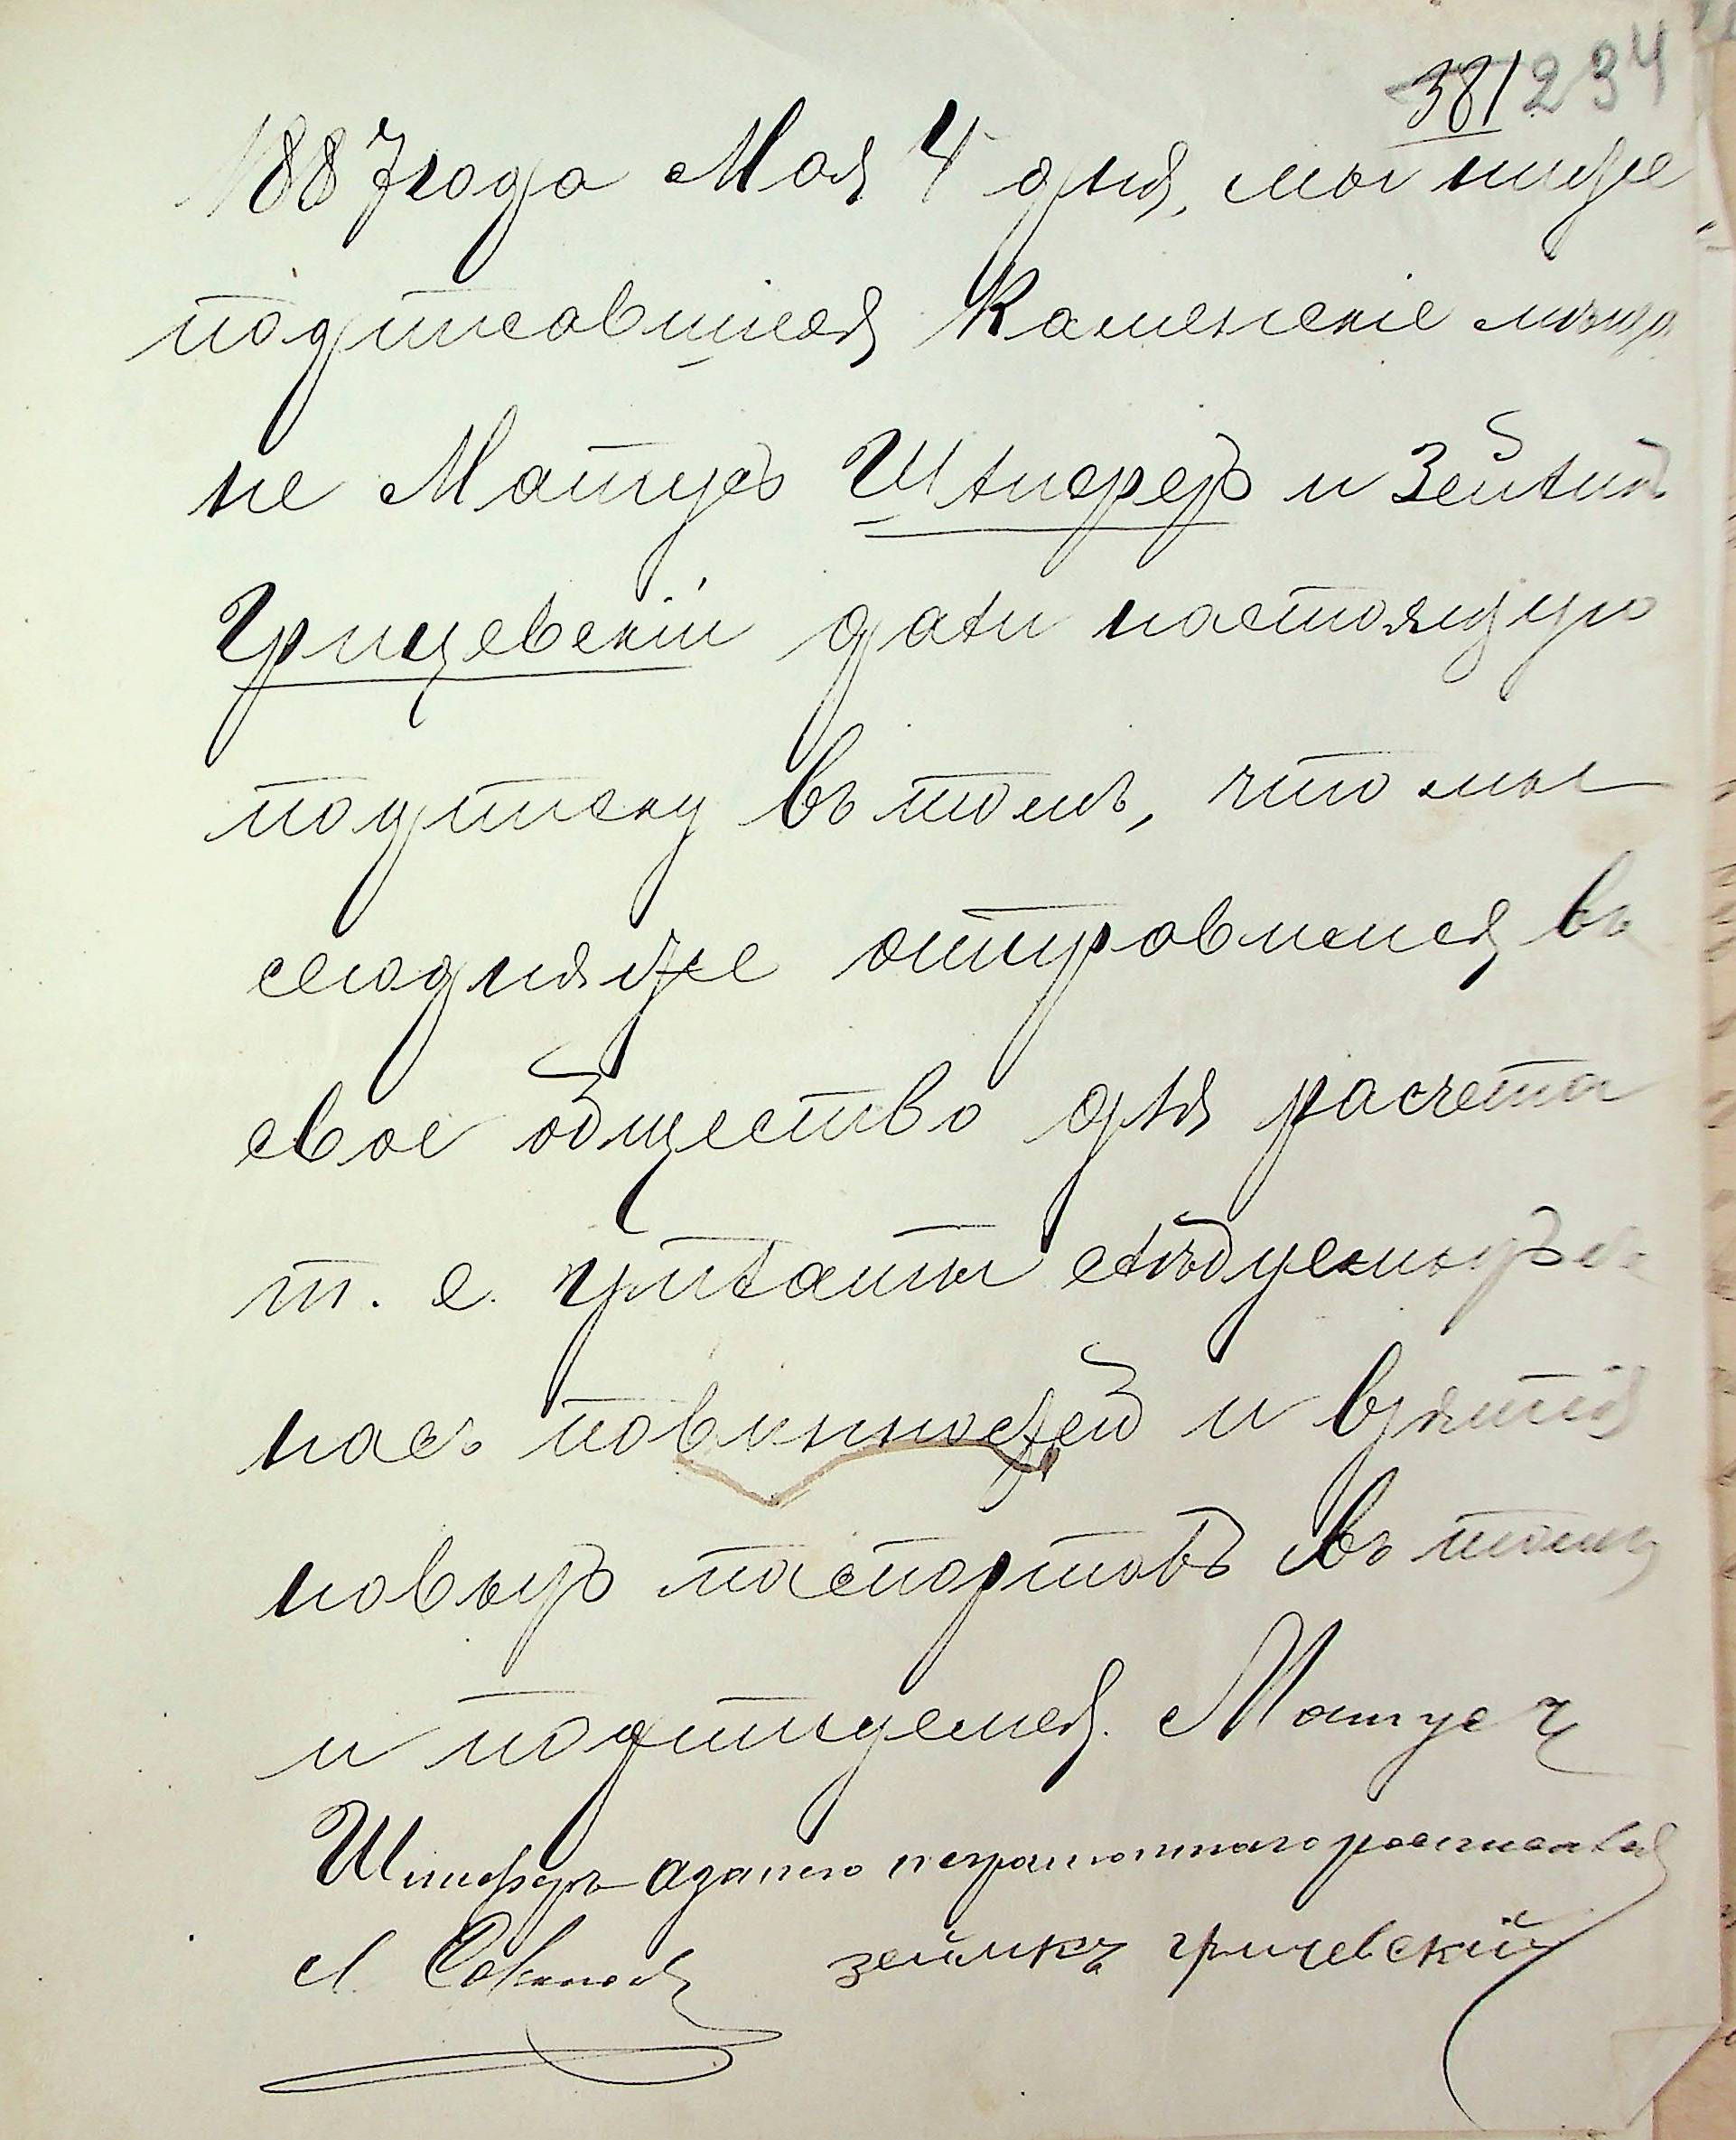 381 234
1887 года Мая 4 дня, мы ниже
подписавшіеся Каменскіе мѣща
не Матусъ Шлиферъ и Зейликъ
Грицевскій дали настоящую
подписку въ томъ, что мы
сегодня же отправимся въ
свое общество для расчета
т. е. уплаты слѣдуемыхъ съ
насъ повинностей и взятія
новыхъ паспортовъ въ томъ
и подпишемся. Матусъ
Шлиферъ а за него неграмотнаго росписался
зеиликъ грицевский